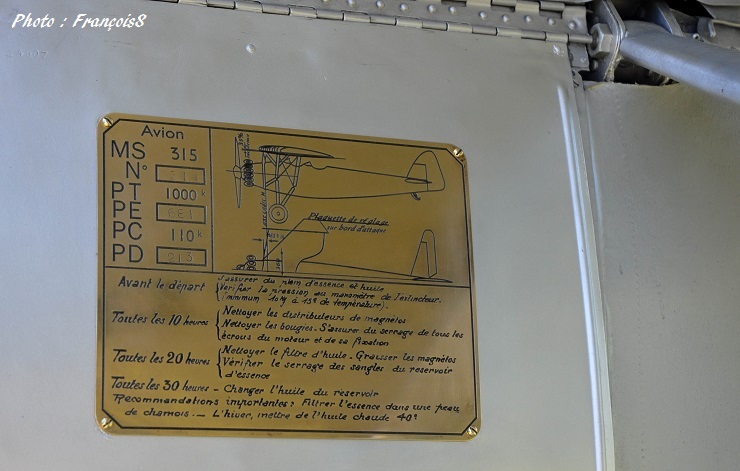 Photo : François8
Avion
MS 315
N°
PT 1000k
PE 661
PC 110k
PD 213
Plaquette de réglage
sur bord d'attaque
Avant le départ
S'assurer du plein d'essence et huile
Vérifier la pression au manomètre de l'extincteur.
(minimum 10k à 15° de température).
Toutes les 10 heures
Nettoyer les distributeurs de magnétos
Nettoyer les bougies - S'assurer du serrage de tous les
écrous du moteur et de sa fixation
Toutes les 20 heures
Nettoyer le filtre d'huile. Graisser les magnétos
Vérifier le serrage des sangles du reservoir
d'essence
Toutes les 30 heures - Changer l'huile du reservoir
Recommandations importantes : Filtrer l'essence dans une peau
de chamois. - L'hiver, mettre de l'huile chaude 40°